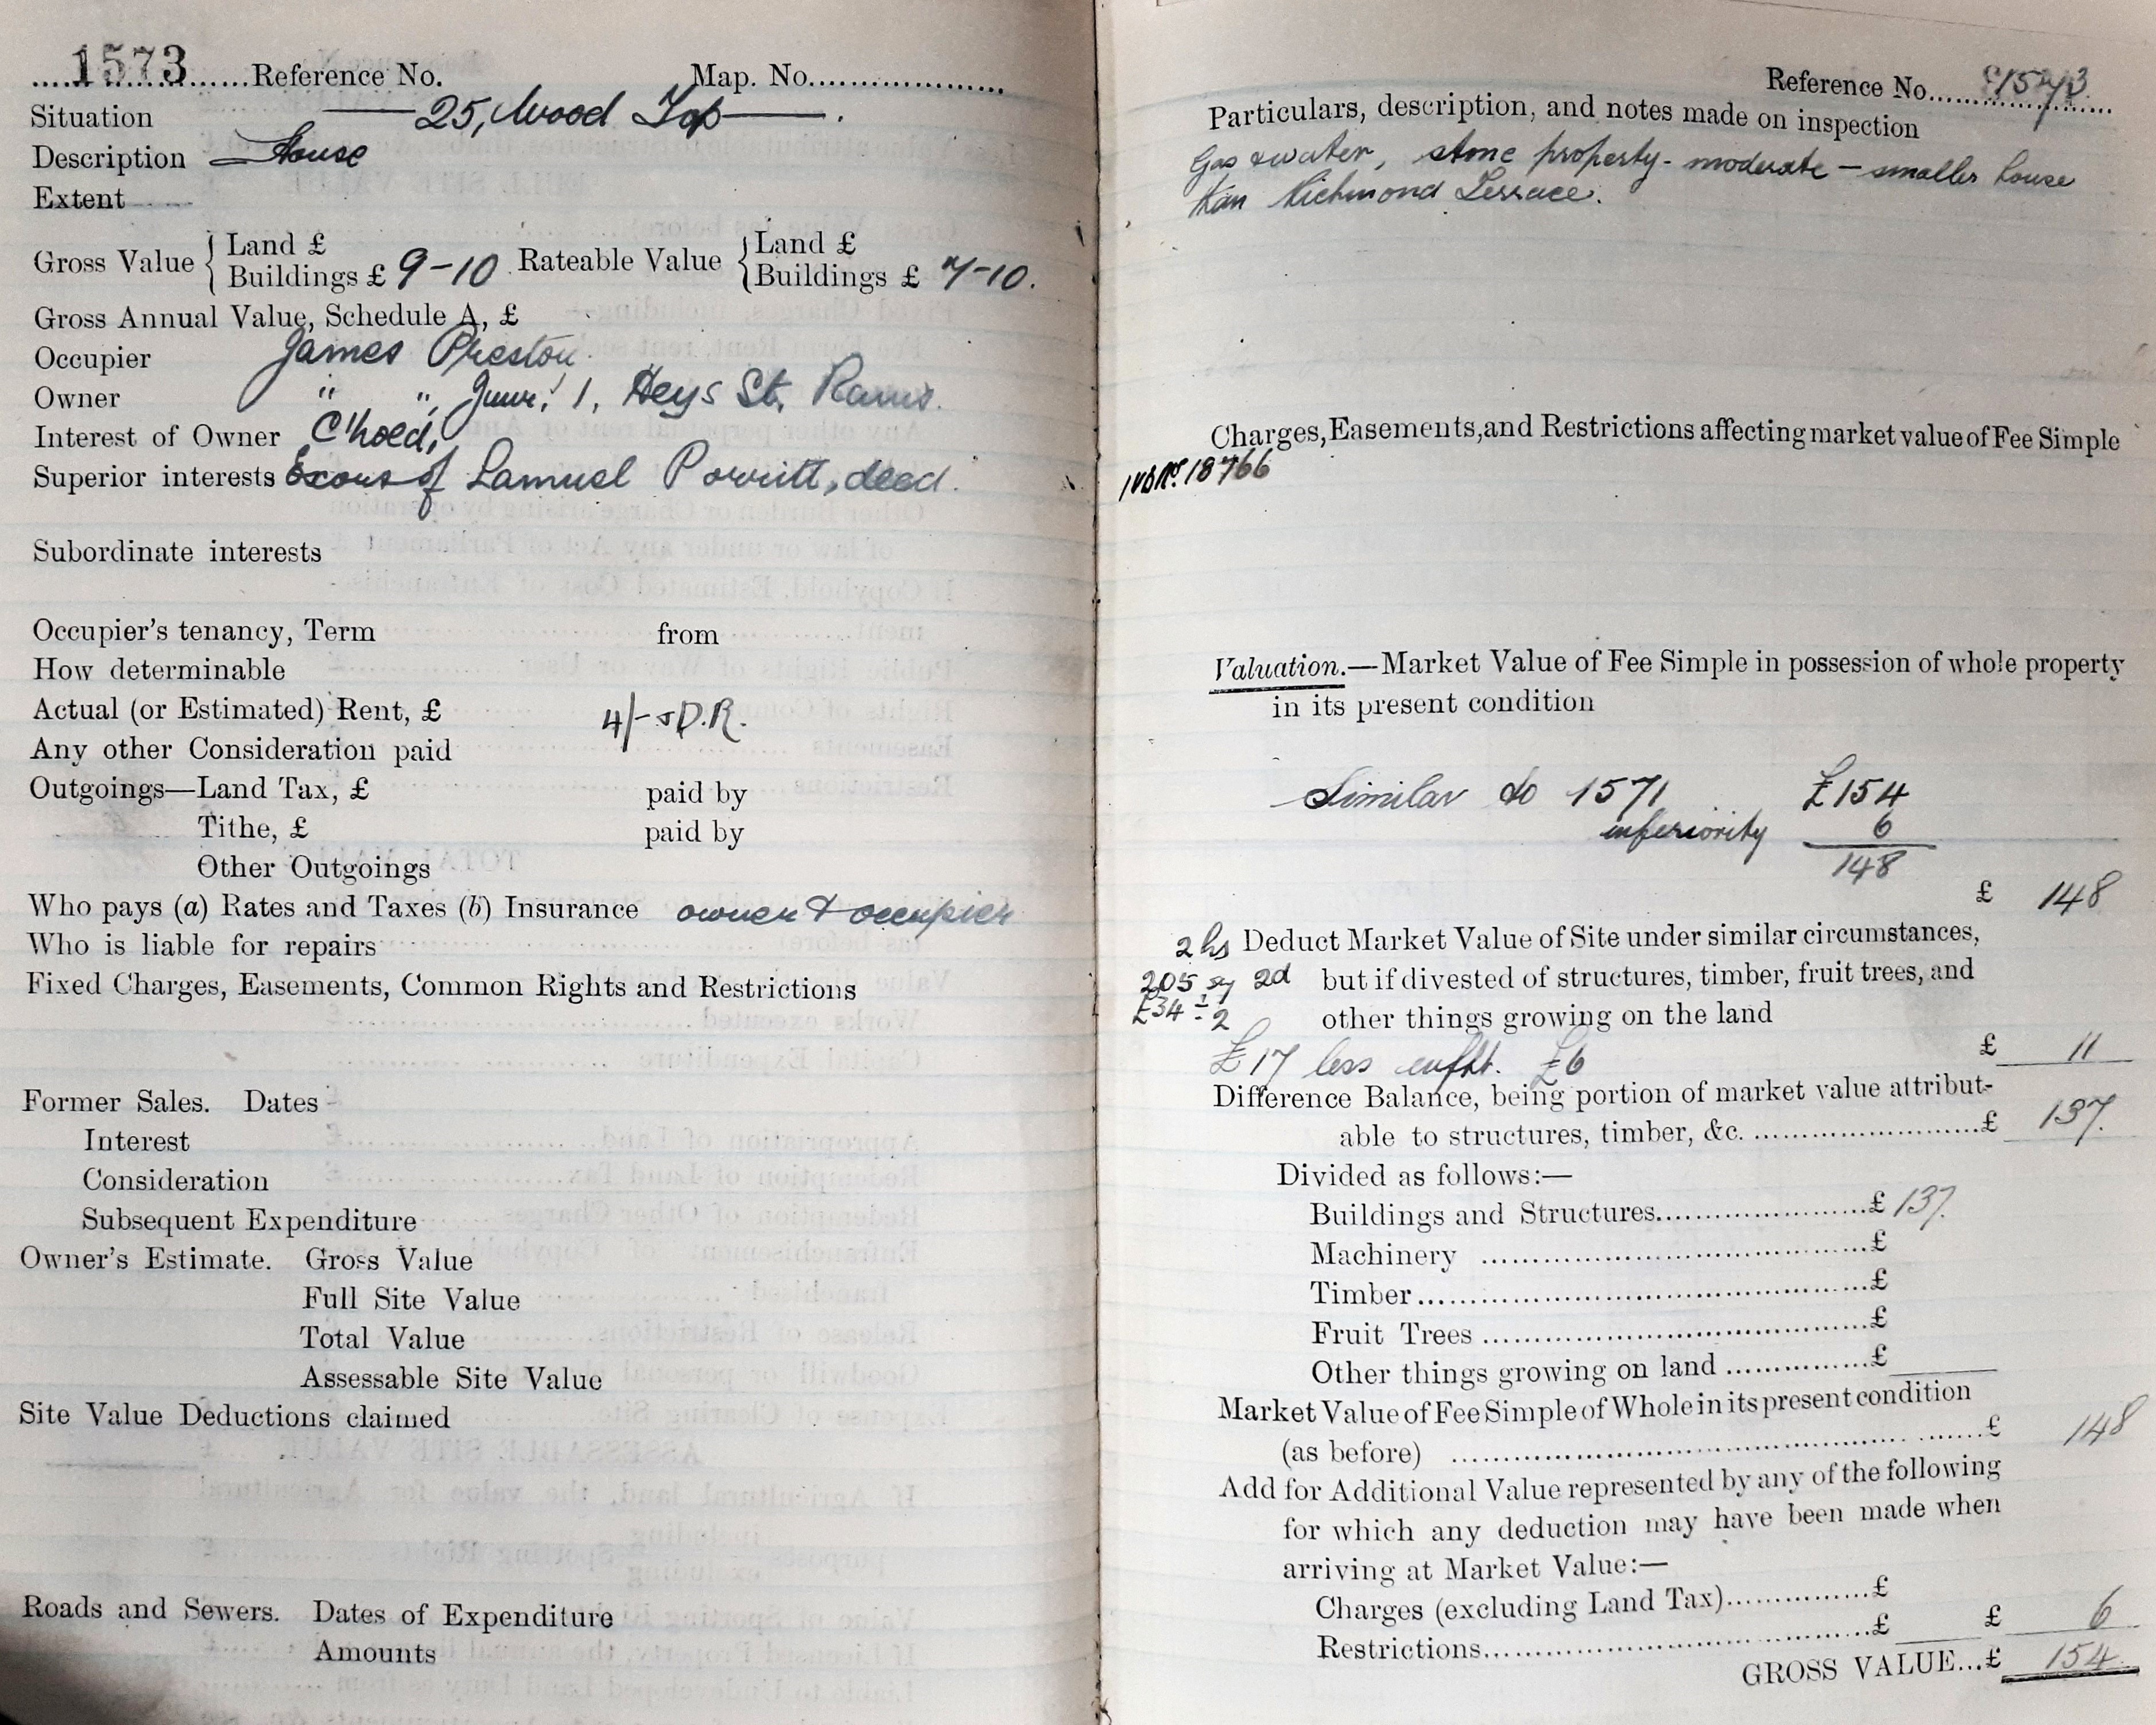 1573 Reference No. Map. No.
Situation 25, Wood Top
Description House
Extent
Gross Value { Land £
Buildings £ 9-10 Rateable Value { Land £
Buildings £ 7-10.
Gross Annual Value, Schedule A, £
Occupier James Preston
Owner " " Junr. 1, Heys St. Rams.
Interest of Owner C'hold,
Superior interests Exors of Samuel Porritt, deed.
Subordinate interests
Occupier's tenancy, Term from
How determinable
Actual (or Estimated) Rent, £ 4/- + D.R.
Any other Consideration paid
Outgoings—Land Tax, £ paid by
Tithe, £ paid by
Other Outgoings
Who pays (a) Rates and Taxes (b) Insurance owner & occupier
Who is liable for repairs
Fixed Charges, Easements, Common Rights and Restrictions
Former Sales. Dates
Interest
Consideration
Subsequent Expenditure
Owner's Estimate. Gross Value
Full Site Value
Total Value
Assessable Site Value
Site Value Deductions claimed
Roads and Sewers. Dates of Expenditure
Amounts
Reference No. 1573
Particulars, description, and notes made on inspection
Gas & water, stone property - moderate — smaller house
than Richmond Terrace.
Charges, Easements, and Restrictions affecting market value of Fee Simple
18766
Valuation.—Market Value of Fee Simple in possession of whole property
in its present condition
Similar to 1571 £154
inferiority 6
148
£ 148
2 hs Deduct Market Value of Site under similar circumstances,
205 sy 2d but if divested of structures, timber, fruit trees, and
£34 ÷ 2 other things growing on the land
£17 less enfht. £6 £ 11
Difference Balance, being portion of market value attribut-
able to structures, timber, &c. £ 137.
Divided as follows:—
Buildings and Structures £ 137.
Machinery £
Timber £
Fruit Trees £
Other things growing on land £
Market Value of Fee Simple of Whole in its present condition
(as before) £ 148
Add for Additional Value represented by any of the following
for which any deduction may have been made when
arriving at Market Value:—
Charges (excluding Land Tax) £
Restrictions £ £ 6
GROSS VALUE...£ 154